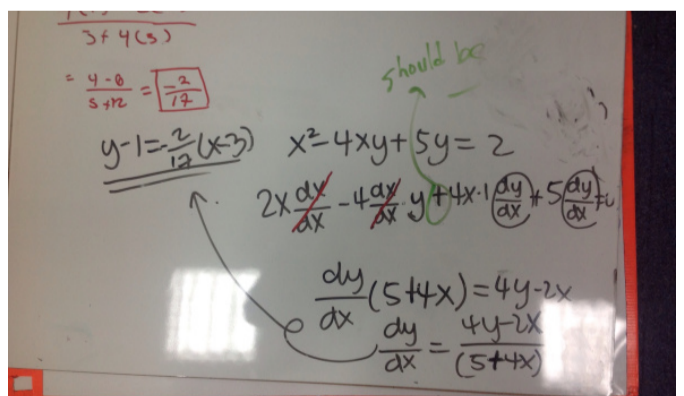 3+4(3)
= 4-8 / 5+12 = -2 / 17
should be –
y-1=-2/17(x-3)
x²-4xy+5y=2
2x dx/dx - 4 dx/dx · y + 4x·1 dy/dx + 5 dy/dx =
dy/dx (5+4x) = 4y-2x
dy/dx = 4y-2x / (5+4x)